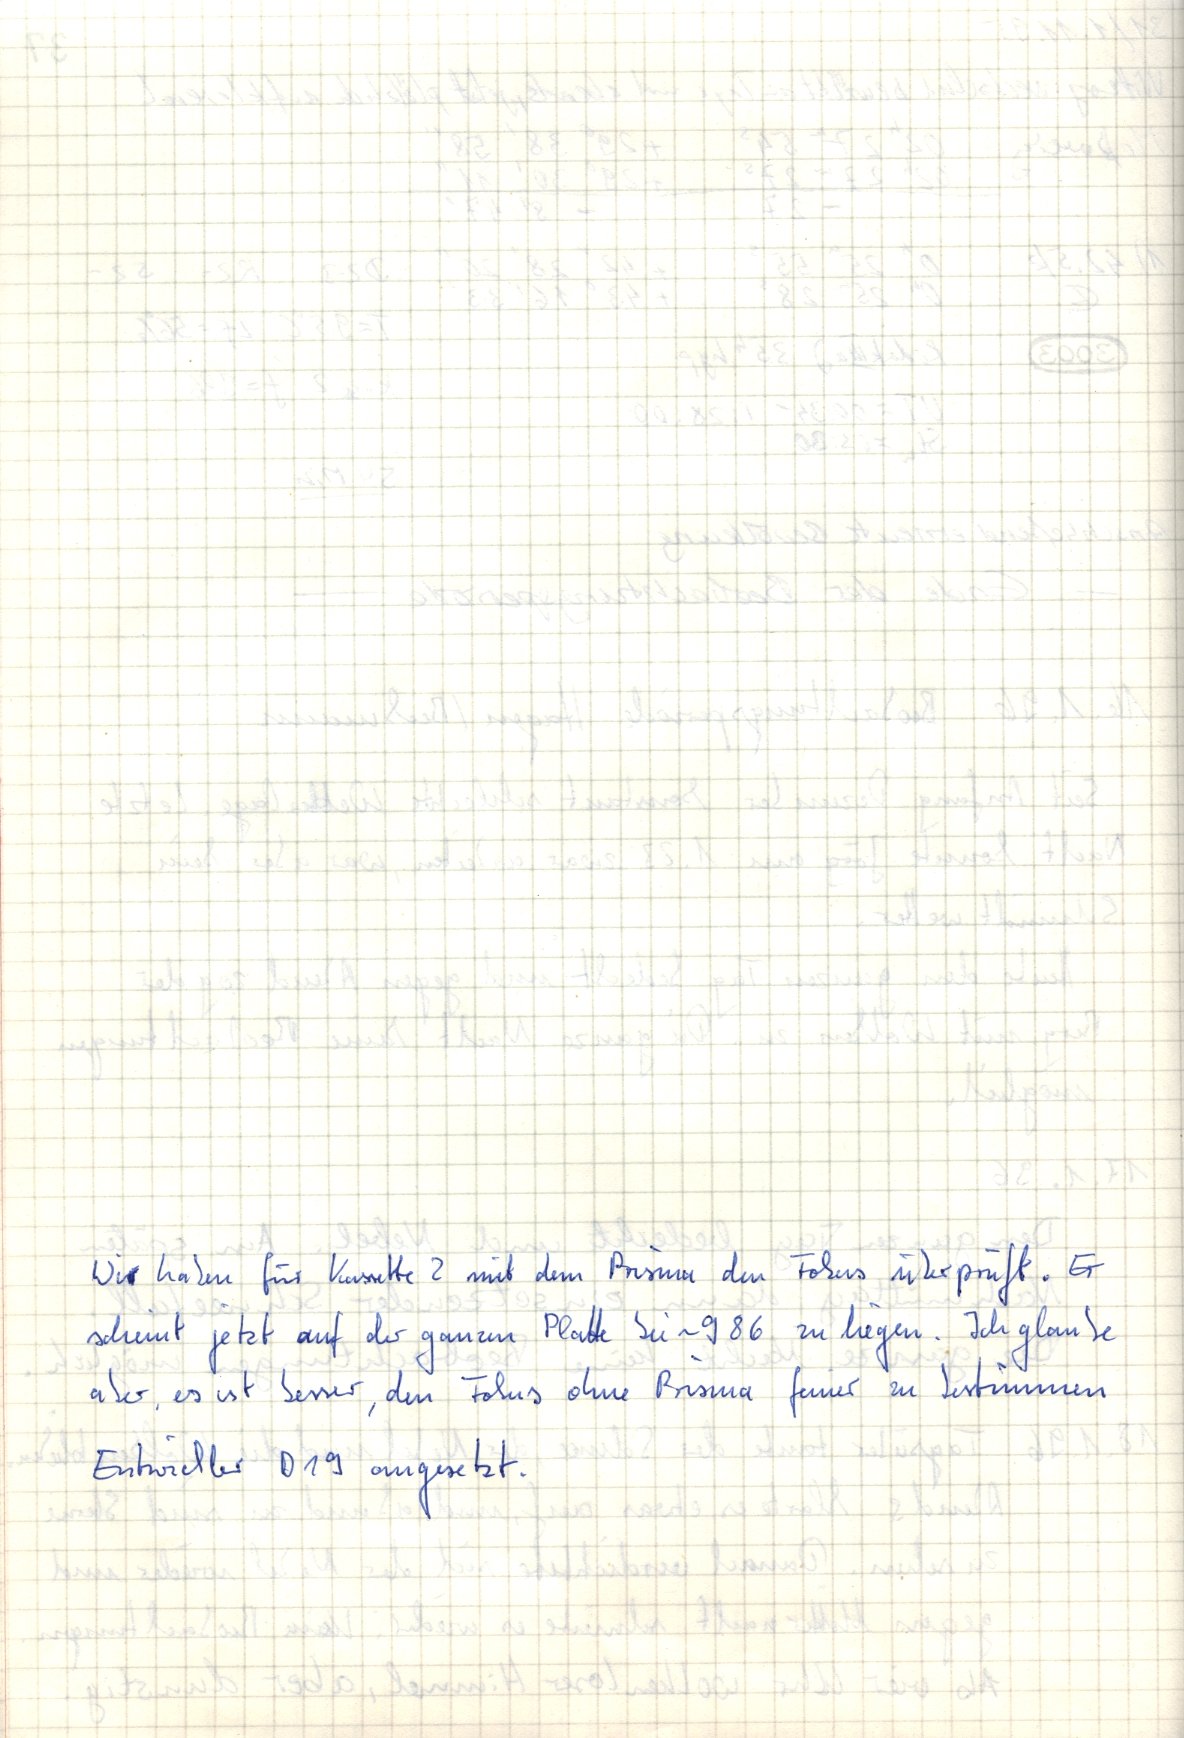 Wir haben für Kassette 2 mit dem Prisma den Fokus überprüft. Er
scheint jetzt auf der ganzen Platte bei ~986 zu liegen. Ich glaube
aber, es ist besser, den Fokus ohne Prisma feiner zu bestimmen
Entwickler D19 angesetzt.